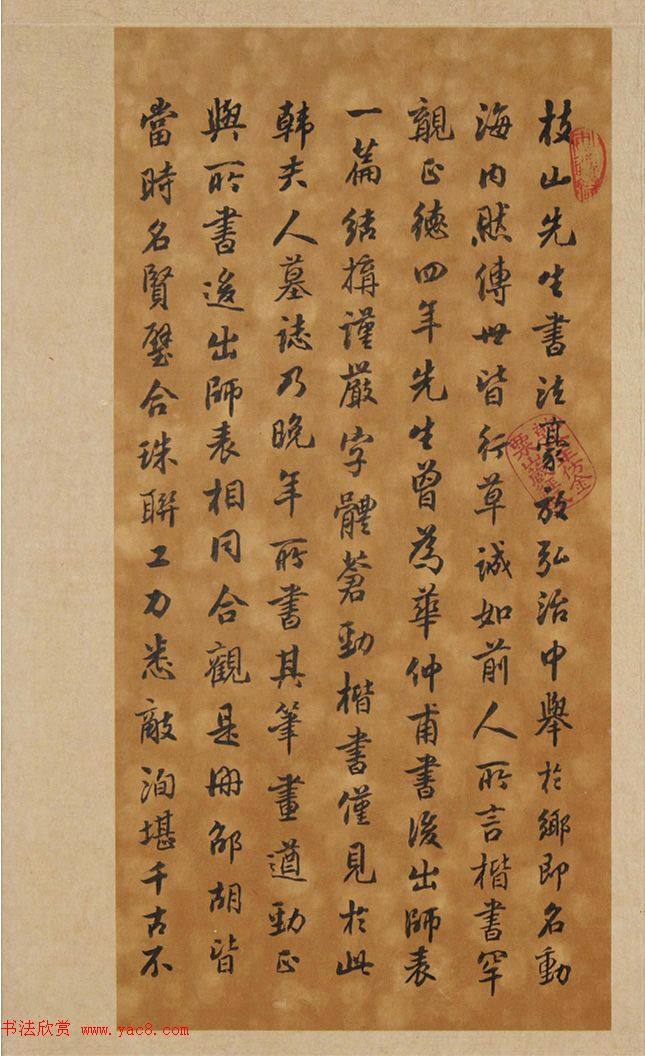 枝山先生書法豪放弘治中舉於鄉即名動
海內然傳世皆行草誠如前人所言楷書罕
觀正德四年先生曾為華仲甫書後出師表
一篇結搆謹嚴字體蒼勁楷書僅見於此
韓夫人墓誌乃晚年所書其筆畫遒勁正
與所書後出師表相同合觀是冊邵胡皆
當時名賢璧合珠聯工力悉敵洵堪千古不
书法欣赏 www.yac8.com